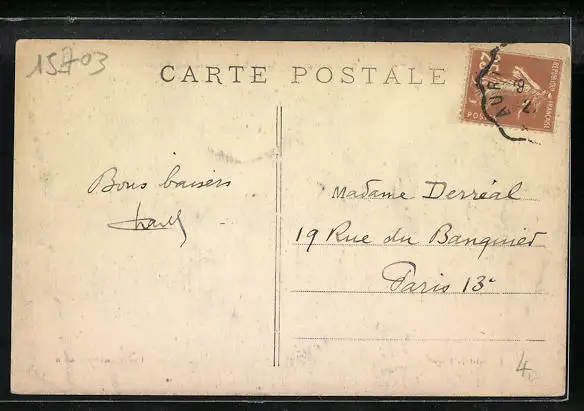 15703
CARTE POSTALE
RÉPUBLIQUE FRANÇAISE
POSTES
AUR
Bons baisers
Madame Derréal
19 Rue du Banquier
Paris 13e
4